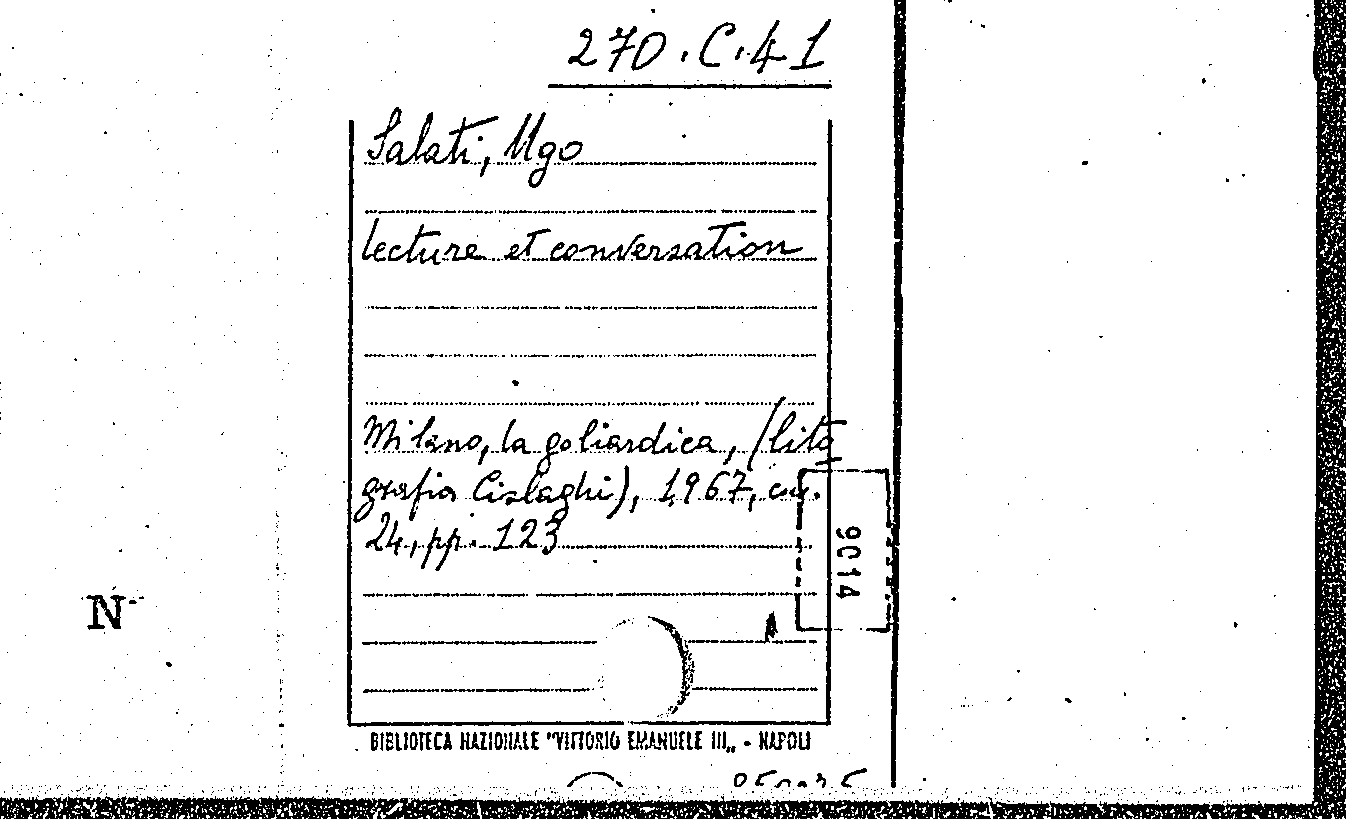 270.C.41
Salati, Ugo
lecture et conversation
Milano, la goliardica, (lito
grafia Cislaghi), 1967, cm.
24, pp. 123
9014
N
BIBLIOTECA NAZIONALE "VITTORIO EMANUELE III„ - NAPOLI